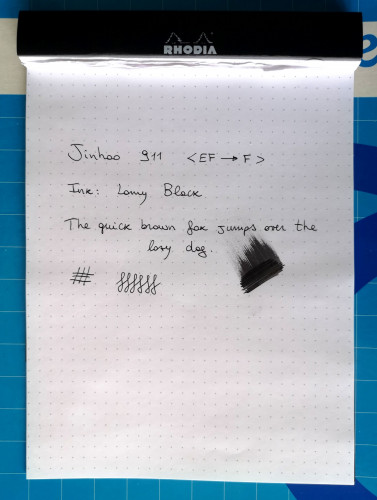 RHODIA
Jinhao 911 <EF → F >
Ink: Lamy Black
The quick brown fox jumps over the
lazy dog.